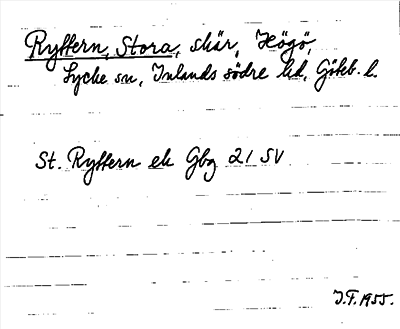 Ryffern, Stora, skär, Högö,
Lycke sn, Inlands södre hd, Göteb. l.
St. Ryffern ek Gbg 21 SV
J.F. 1955.